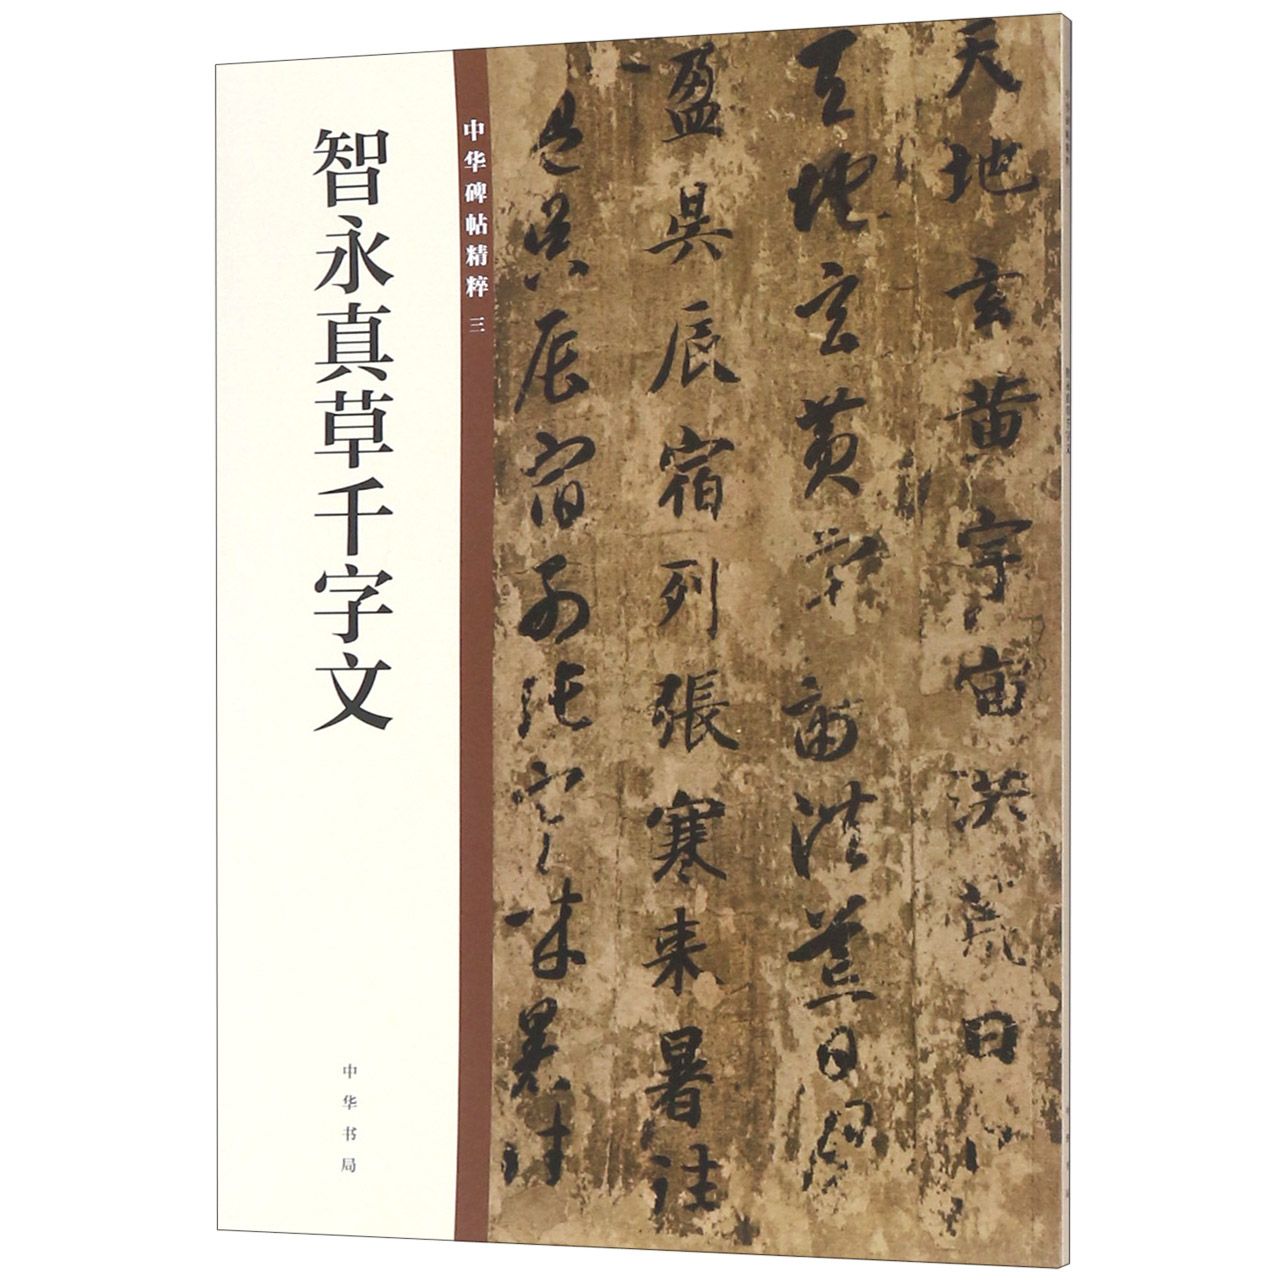 智永真草千字文
中华书局
中华碑帖精粹 三
天地玄黄宇宙洪荒日
天地玄黄宇宙洪荒日月
盈昃辰宿列張寒来暑往
盈昃辰宿列張寒来暑往